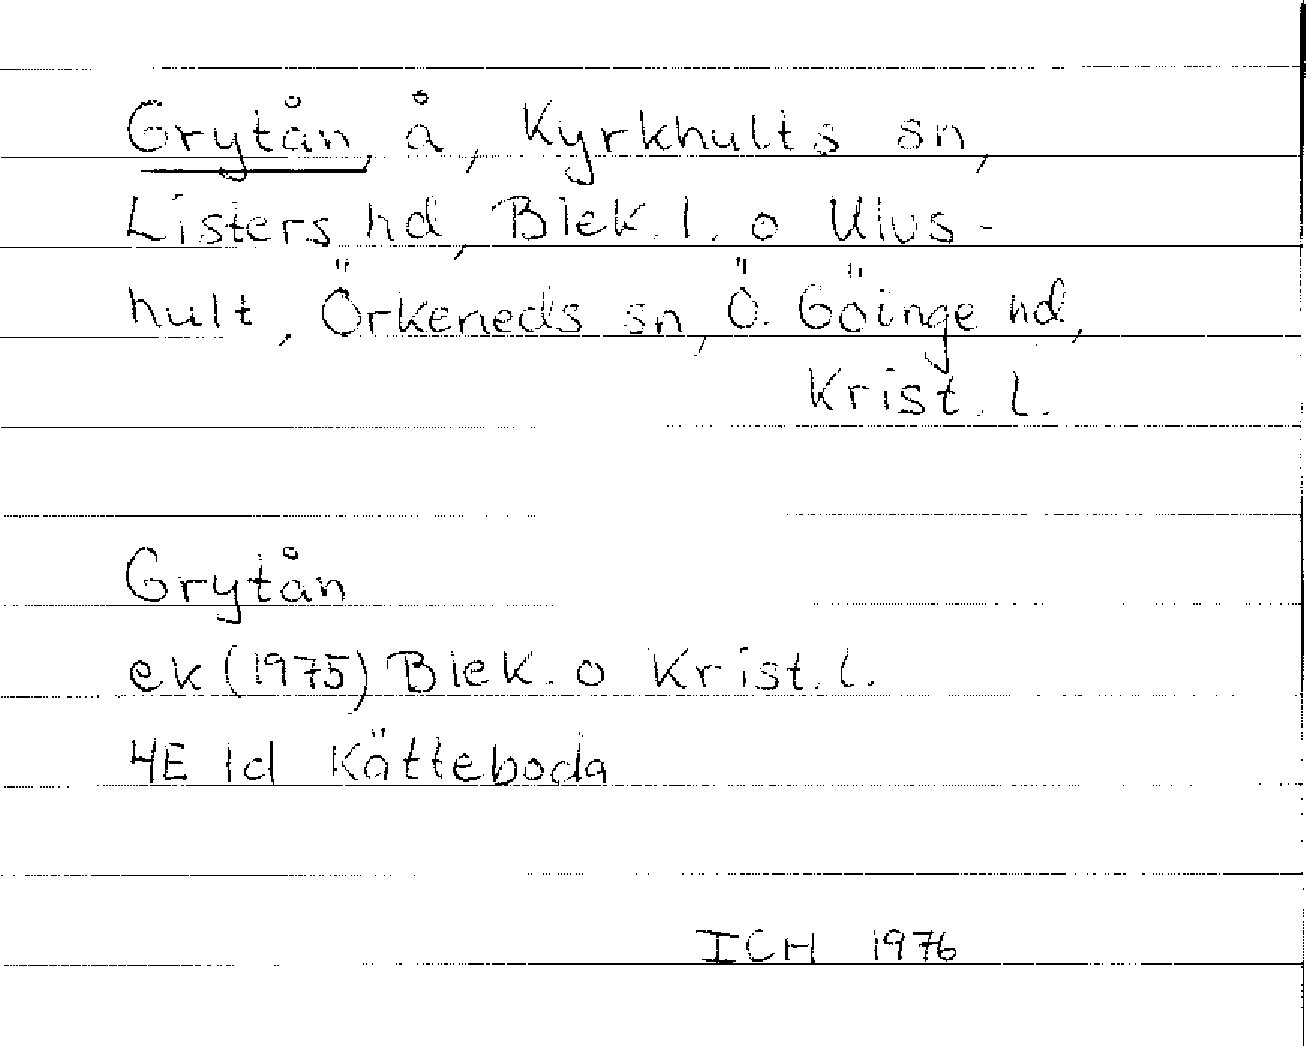 Grytån, å, Kyrkhults sn,
Listers hd, Blek. l. o Ulvs-
hult, Örkeneds sn, Ö. Göinge hd,
Krist. l.
Grytån
ek (1975) Blek. o Krist. l.
4E 1d Kätteboda
ICH 1976